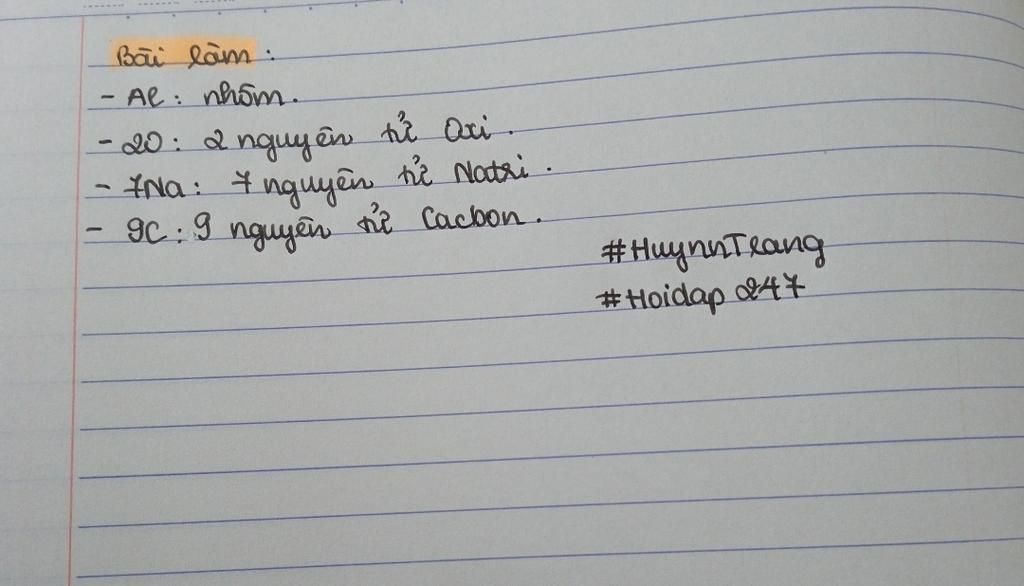 Bài làm :
- Al : nhôm.
- 2O : 2 nguyên tử Oxi .
- 7Na : 7 nguyên tử Natri .
- 9C : 9 nguyên tử Cacbon .
#HuynnTrang
#Hoidap 247